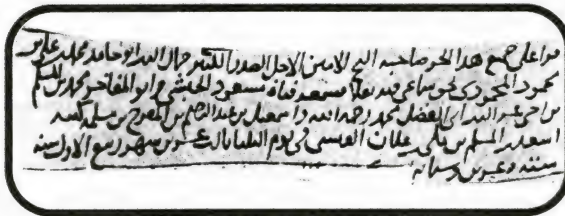 قرا علي جميع هذا الجزء صاحبه الشيخ الامين الاجل الصدر الكبير جمال الدين ابو حامد محمد بن علي بن
محمود المحمودي بحق سماعي فيه فسمعه فتاه مسعود الحبشي وابو المفاخر محمد بن المسلم
ابي الفضل محمد رحمه الله واسمعيل بن بن المفرج بن مسلمة كتبه
اسعد بن المسلم بن مكي بن علان القيسي في يوم الثلثا ثالث عشرين شهر ربيع الاول سنة
ستة وعشرين وستمائة